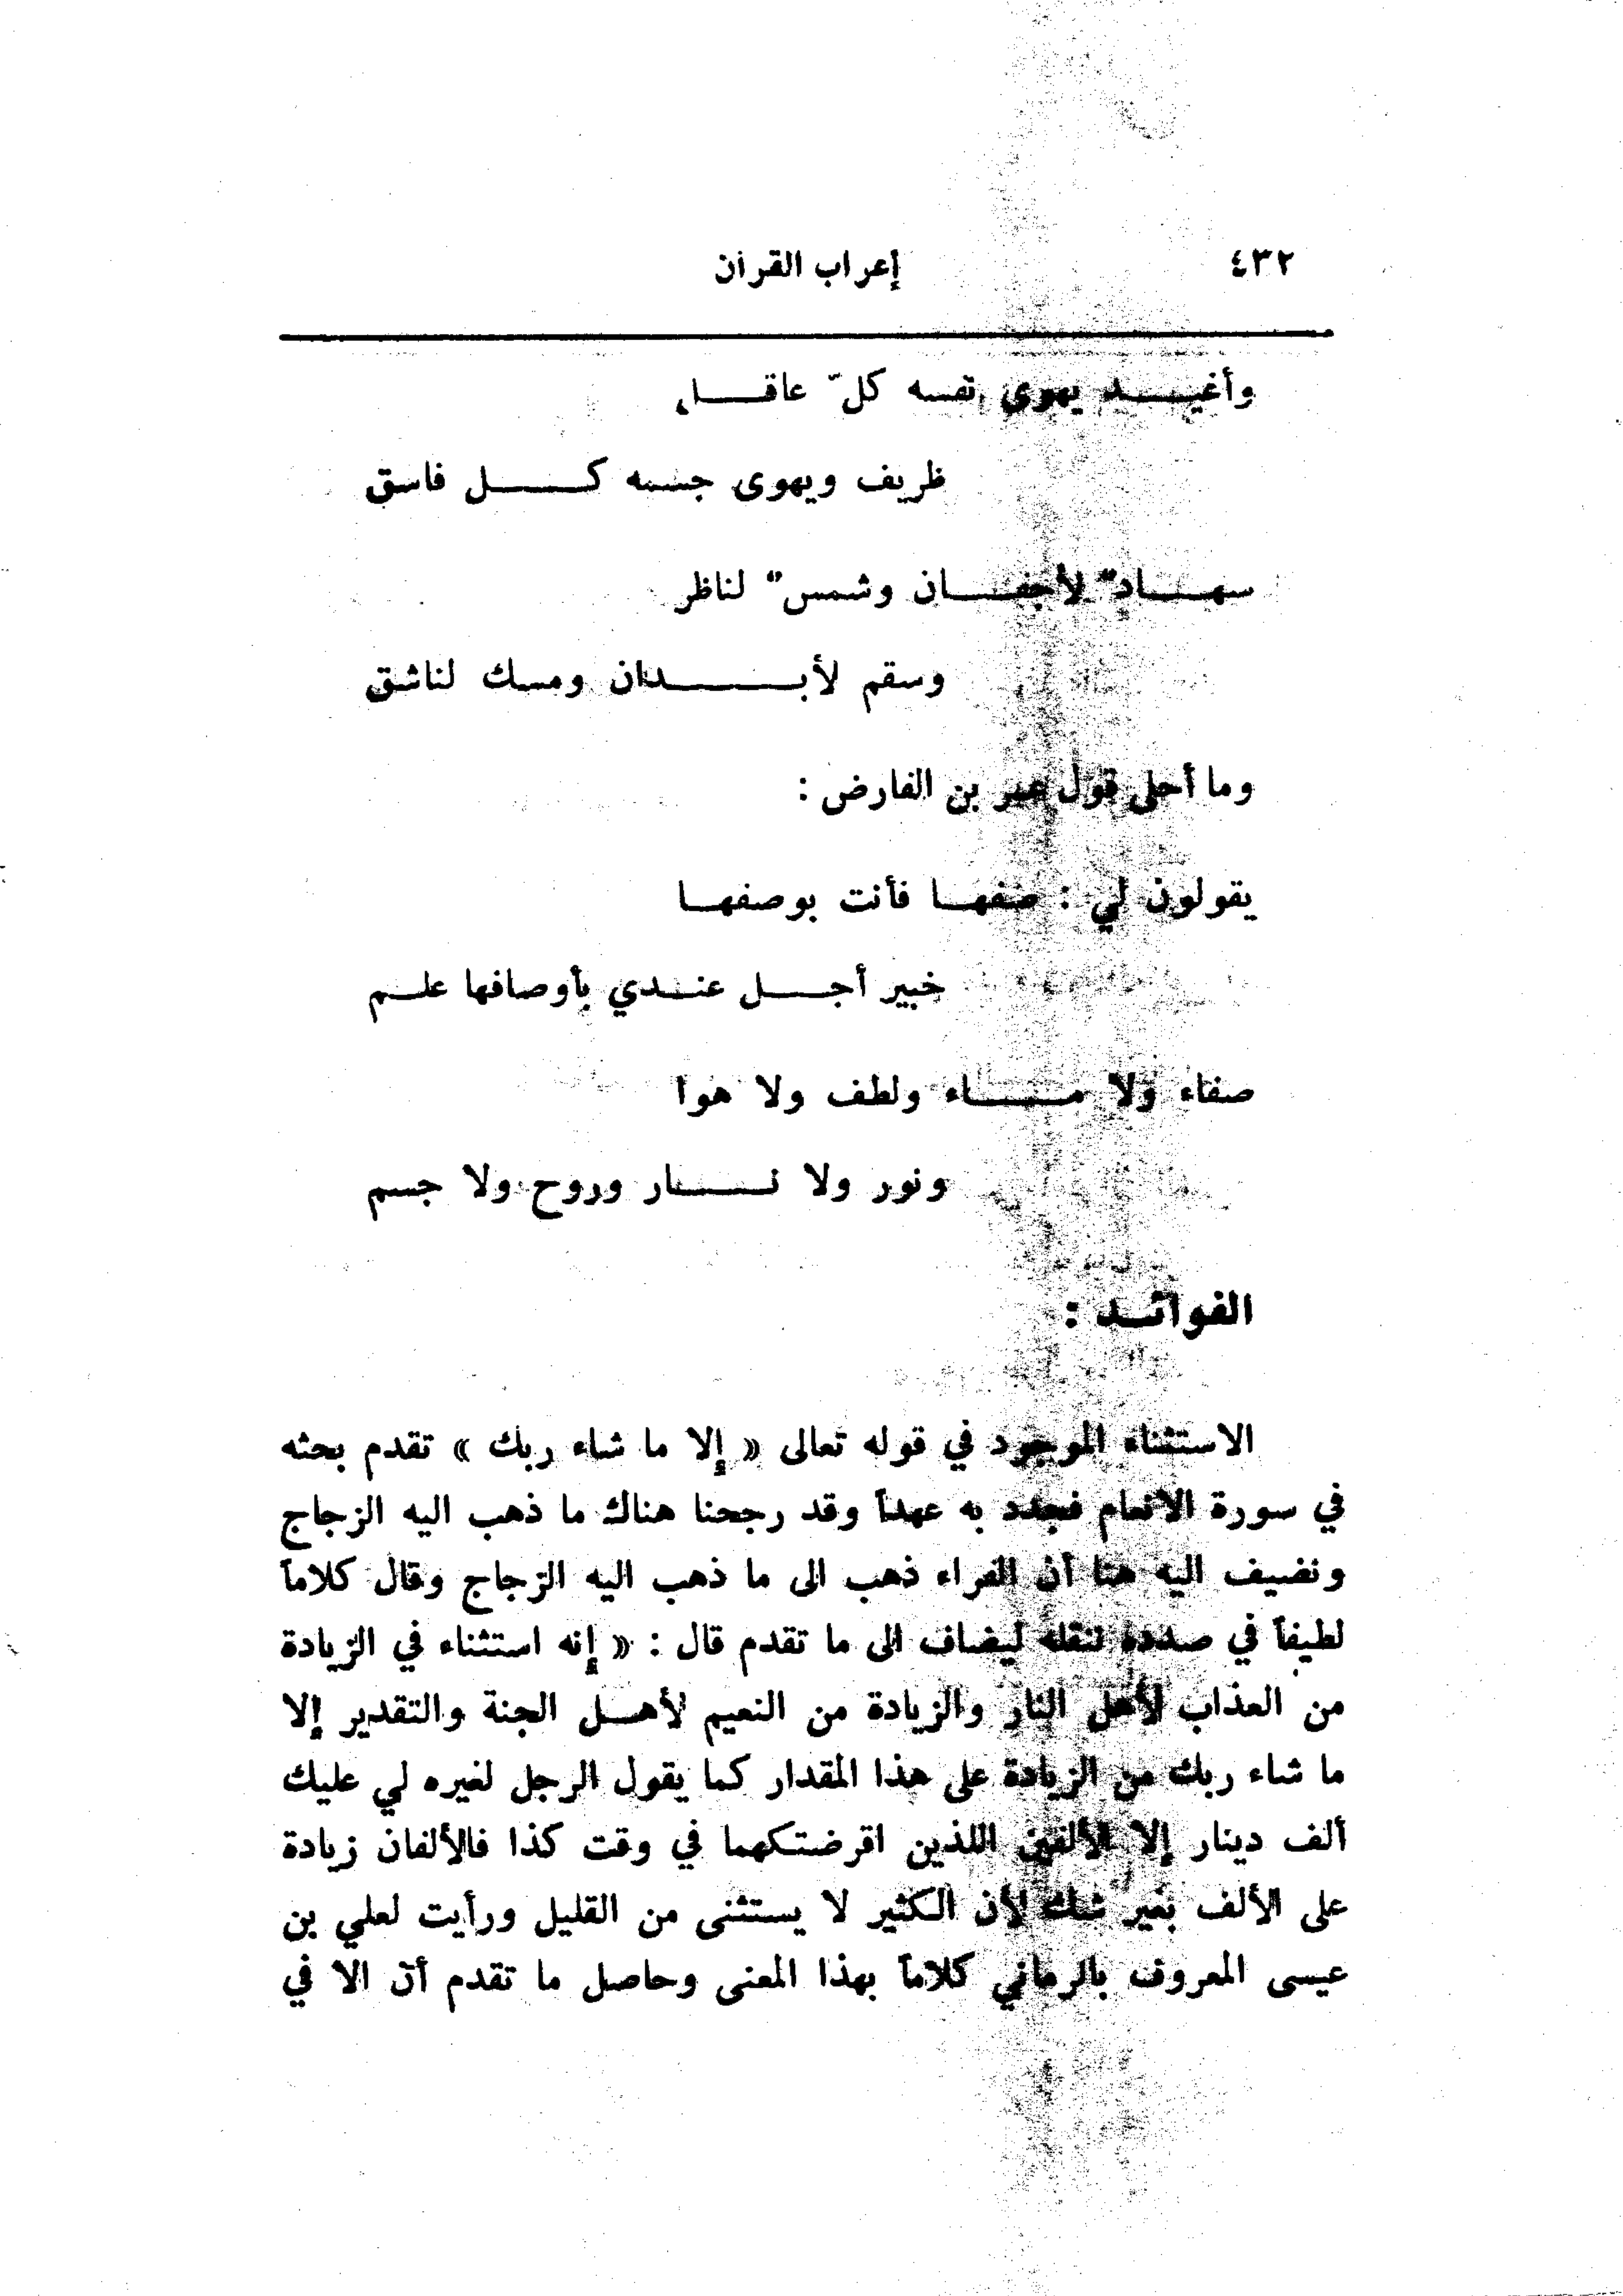 ٤٣٢
إعراب القرآن
وأغيـــد يهوى نفسه كلّ عاقـــل
ظريف ويهوى جسمه كـــل فاسق
سهـــادٌ لأجفـــان وشمسٌ لناظر
وسقم لأبـــدان ومسك لناشق
وما أحلى قول عمر بن الفارض :
يقولون لي : صفهـا فأنت بوصفهـا
خبير أجـــل عنــدي بأوصافها علــم
صفاء ولا مـــاء ولطف ولا هوا
ونور ولا نـــار وروح ولا جسم
الفوائــد :
الاستثناء الموجود في قوله تعالى « إلا ما شاء ربك » تقدم بحثه
في سورة الانعام فجدد به عهداً وقد رجحنا هناك ما ذهب اليه الزجاج
ونضيف اليه هنا أن الفراء ذهب الى ما ذهب اليه الزجاج وقال كلاماً
لطيفاً في صدده ننقله ليضاف الى ما تقدم قال : « إنه استثناء في الزيادة
من العذاب لأهل النار والزيادة من النعيم لأهــل الجنة والتقدير إلا
ما شاء ربك من الزيادة على هذا المقدار كما يقول الرجل لغيره لي عليك
ألف دينار إلا الألفين اللذين اقرضتكهما في وقت كذا فالألفان زيادة
على الألف بغير شك لأن الكثير لا يستثنى من القليل ورأيت لعلي بن
عيسى المعروف بالرماني كلاماً بهذا المعنى وحاصل ما تقدم أن الا في